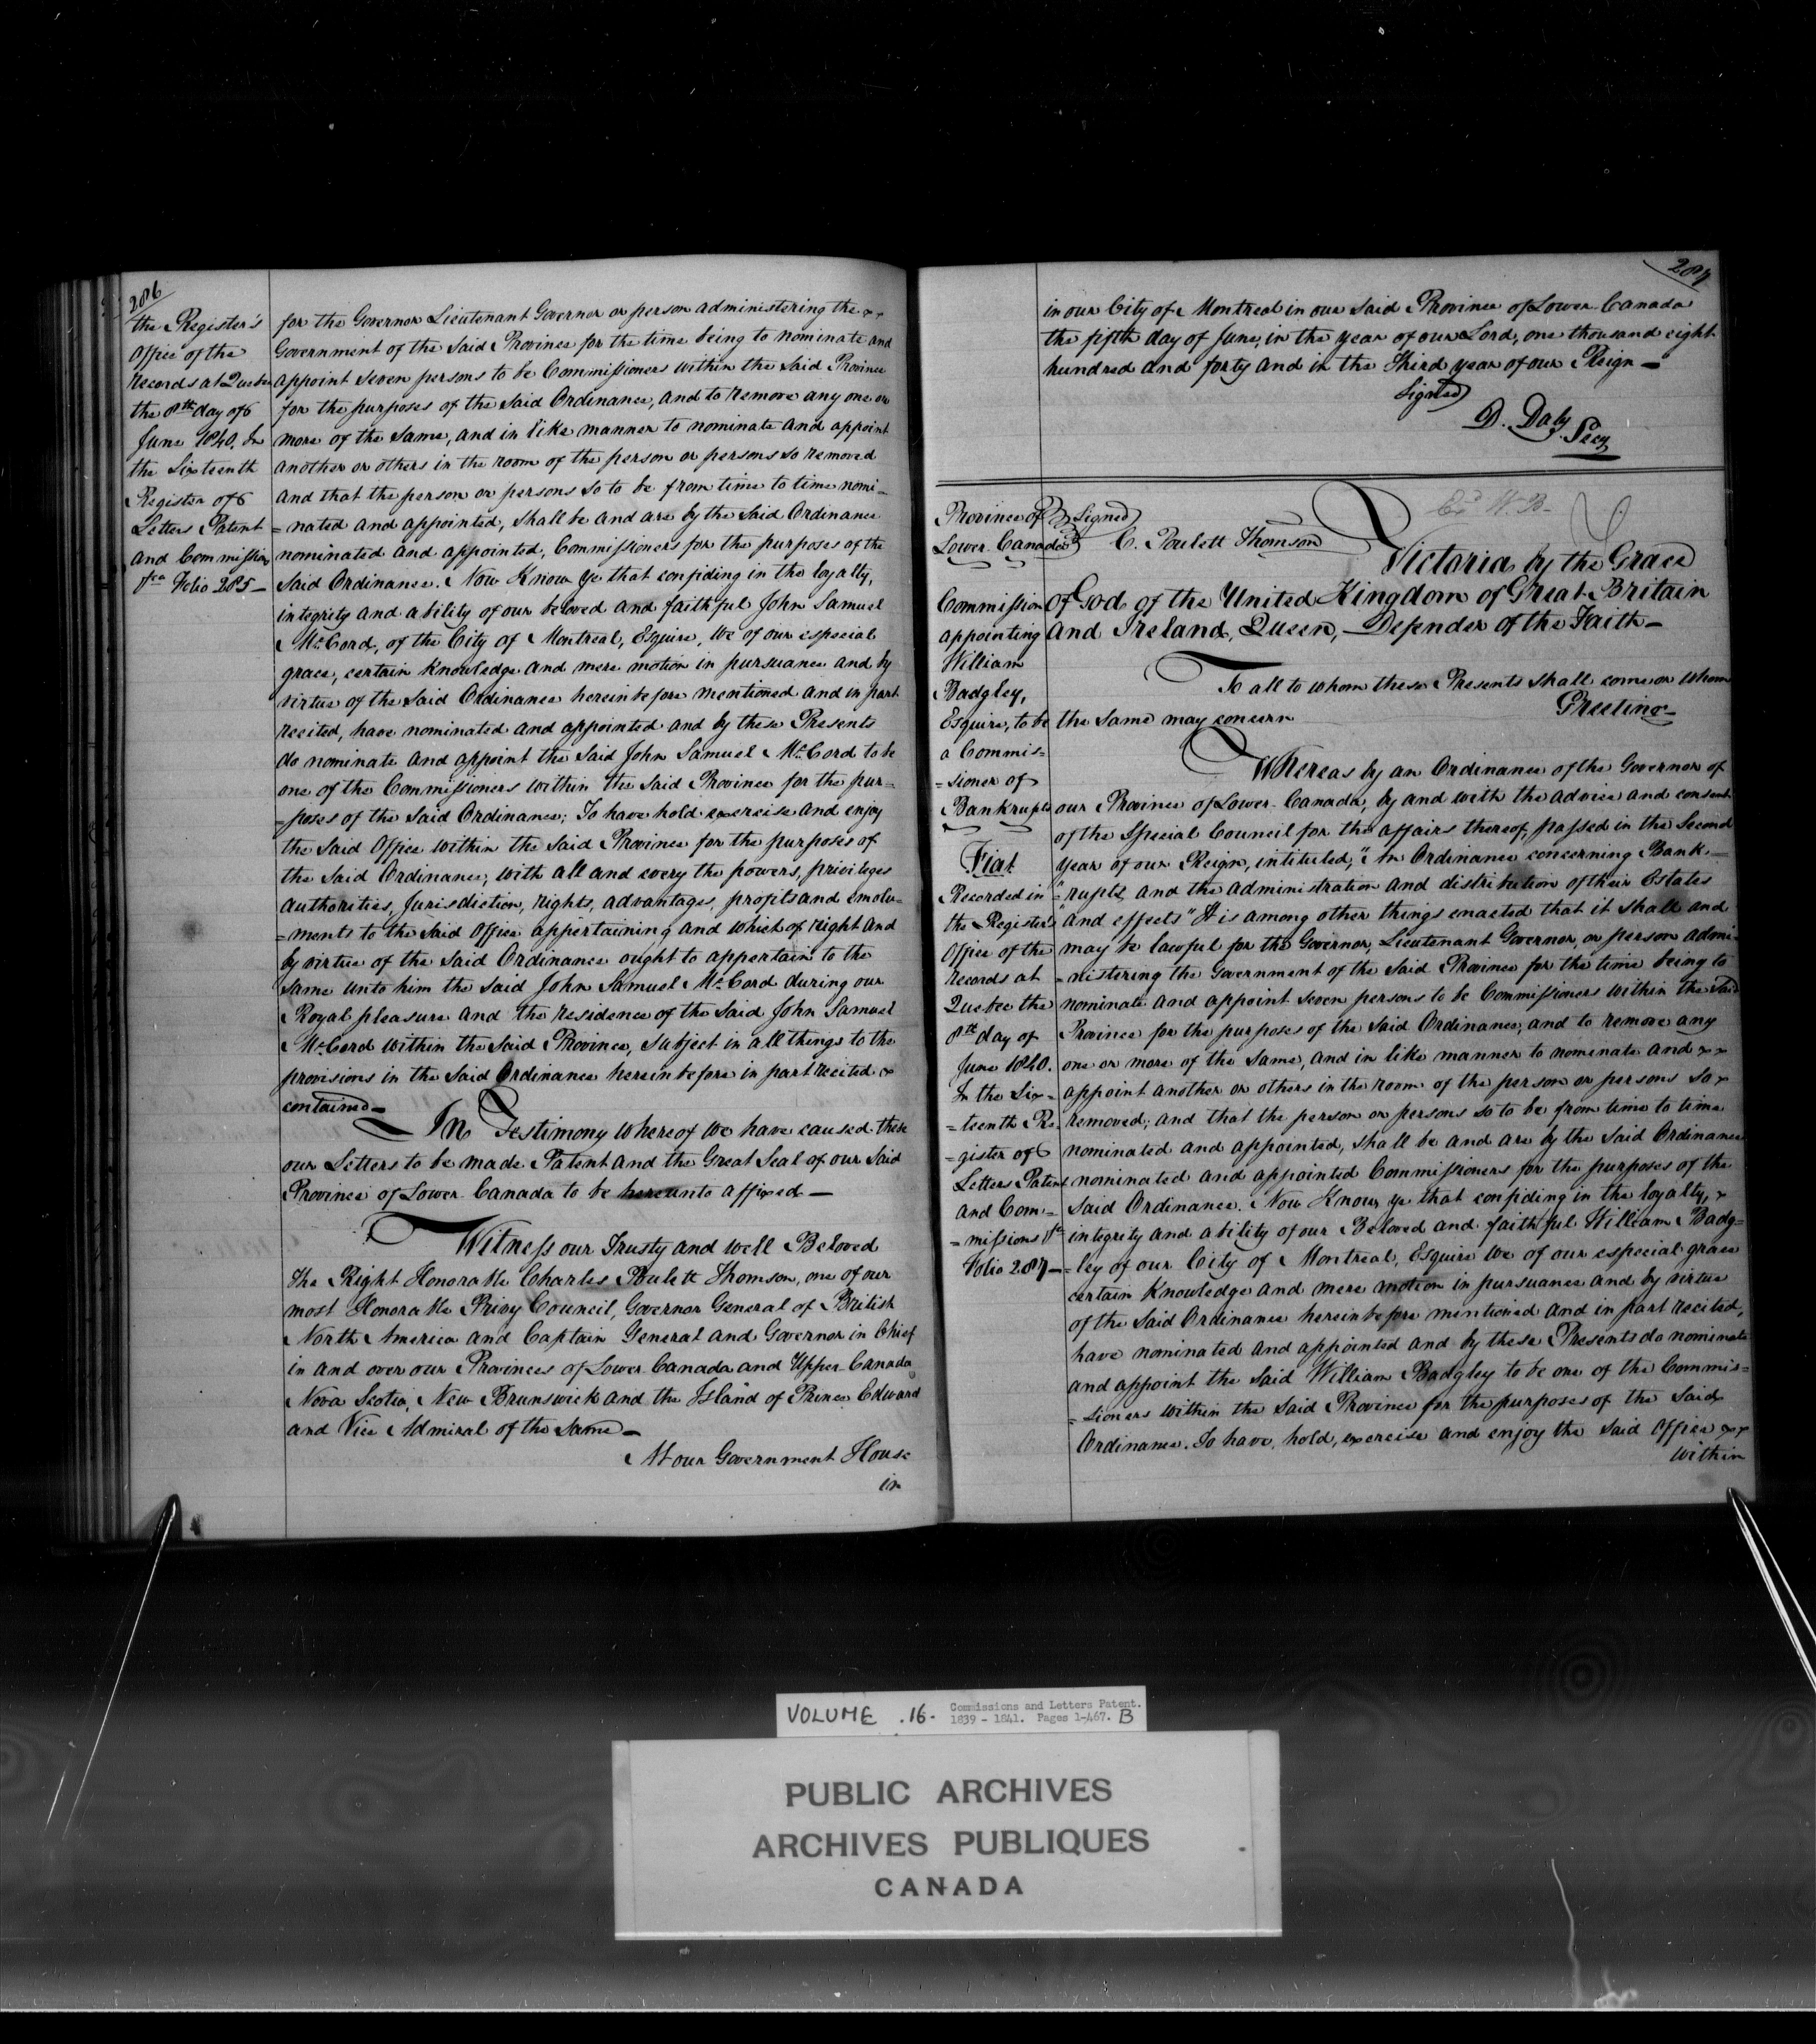 286
the Register's
Office of the
records at Quebec
the 8th day of
June 1840. In
the Sixteenth
Register of
Letters Patent
and Commissions
Folio 285 –
for the Governor Lieutenant Governor or person administering the
Government of the said Province for the time being to nominate and
appoint seven persons to be Commissioners within the said Province
for the purposes of the said Ordinance, and to remove any one or
more of the same, and in like manner to nominate and appoint
another or others in the room of the person or persons so removed
and that the person or persons so to be from time to time nomi-
=nated and appointed, shall be and are by the said Ordinance
nominated and appointed, Commissioners for the purposes of the
said Ordinance. Now Know ye that confiding in the loyalty,
integrity and ability of our beloved and faithful John Samuel
McCord, of the City of Montreal, Esquire, we of our especial
grace, certain Knowledge and mere motion in pursuance and by
virtue of the said Ordinance hereinbefore mentioned and in part
recited, have nominated and appointed and by these Presents
do nominate and appoint the said John Samuel McCord to be
one of the Commissioners within the said Province for the pur=
=poses of the said Ordinance; To have hold exercise and enjoy
the said Office within the said Province for the purposes of
the said Ordinance, with all and every the powers, privileges
authorities, Jurisdiction, rights, advantages, profits and emolu=
=ments to the said Office appertaining and which of right and
by virtue of the said Ordinance ought to appertain to the
same unto him the said John Samuel McCord during our
Royal pleasure and the residence of the said John Samuel
McCord within the said Province, subject in all things to the
provisions in the said Ordinance hereinbefore in part recited &
contained –
In Testimony whereof we have caused these
our Letters to be made Patent and the Great Seal of our said
Province of Lower Canada to be hereunto affixed –
Witness our Trusty and well Beloved
The Right Honorable Charles Poulett Thomson, one of our
most Honorable Privy Council, Governor General of British
North America and Captain General and Governor in Chief
in and over our Provinces of Lower Canada and Upper Canada
Nova Scotia, New Brunswick and the Island of Prince Edward
and Vice Admiral of the same –
At our Government House
in
287
in our City of Montreal in our said Province of Lower Canada
the fifth day of June, in the year of our Lord, one thousand eight
hundred and forty and in the Third year of our Reign –
Signed
D. Daly
Secy
Province of Signed
Lower Canada C. Poulett Thomson
Commission
appointing
William
Badgley,
Esquire, to be
a Commis=
=sioner of
Bankrupts
Fiat
Recorded in
the Registers
Office of the
records at
Quebec the
8th day of
June 1840.
In the Six=
=teenth Re=
=gister of
Letters Patent
and Com=
=missions
Folio 287 –
Victoria by the Grace
of God of the United Kingdom of Great Britain
and Ireland, Queen, Defender of the Faith –
To all to whom these Presents shall come or whom
the same may concern Greeting –
Whereas by an Ordinance of the Governor of
our Province of Lower Canada, by and with the advice and consent
of the Special Council for the affairs thereof, passed in the Second
year of our Reign, intituled, "An Ordinance concerning Bank-
"rupts, and the administration and distribution of their Estates
"and effects" It is among other things enacted that it shall and
may be lawful for the Governor, Lieutenant Governor, or person admi-
=nistering the Government of the said Province for the time being to
nominate and appoint seven persons to be Commissioners within the said
Province for the purposes of the said Ordinance, and to remove any
one or more of the same, and in like manner to nominate and
appoint another or others in the room of the person or persons so
removed; and that the person or persons so to be from time to time
nominated and appointed, shall be and are by the said Ordinance
nominated and appointed Commissioners for the purposes of the
said Ordinance. Now Know ye that confiding in the loyalty,
integrity and ability of our Beloved and faithful William Badg=
=ley of our City of Montreal, Esquire We of our especial grace
certain Knowledge and mere motion in pursuance and by virtue
of the said Ordinance hereinbefore mentioned and in part recited,
have nominated and appointed and by these Presents do nominate
and appoint the said William Badgley to be one of the Commis=
=sioners within the said Province for the purposes of the said
Ordinance. To have, hold, exercise and enjoy the said Office
within
VOLUME .16. Commissions and Letters Patent.
1839 - 1841. Pages 1-467. B
PUBLIC ARCHIVES
ARCHIVES PUBLIQUES
CANADA